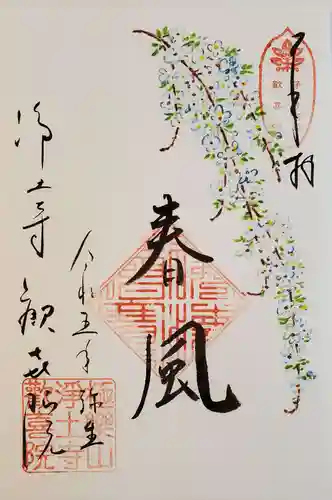 奉拝
春風
令和五年
弥生
浄土寺 歓喜院
極楽山
浄土寺
歓喜院